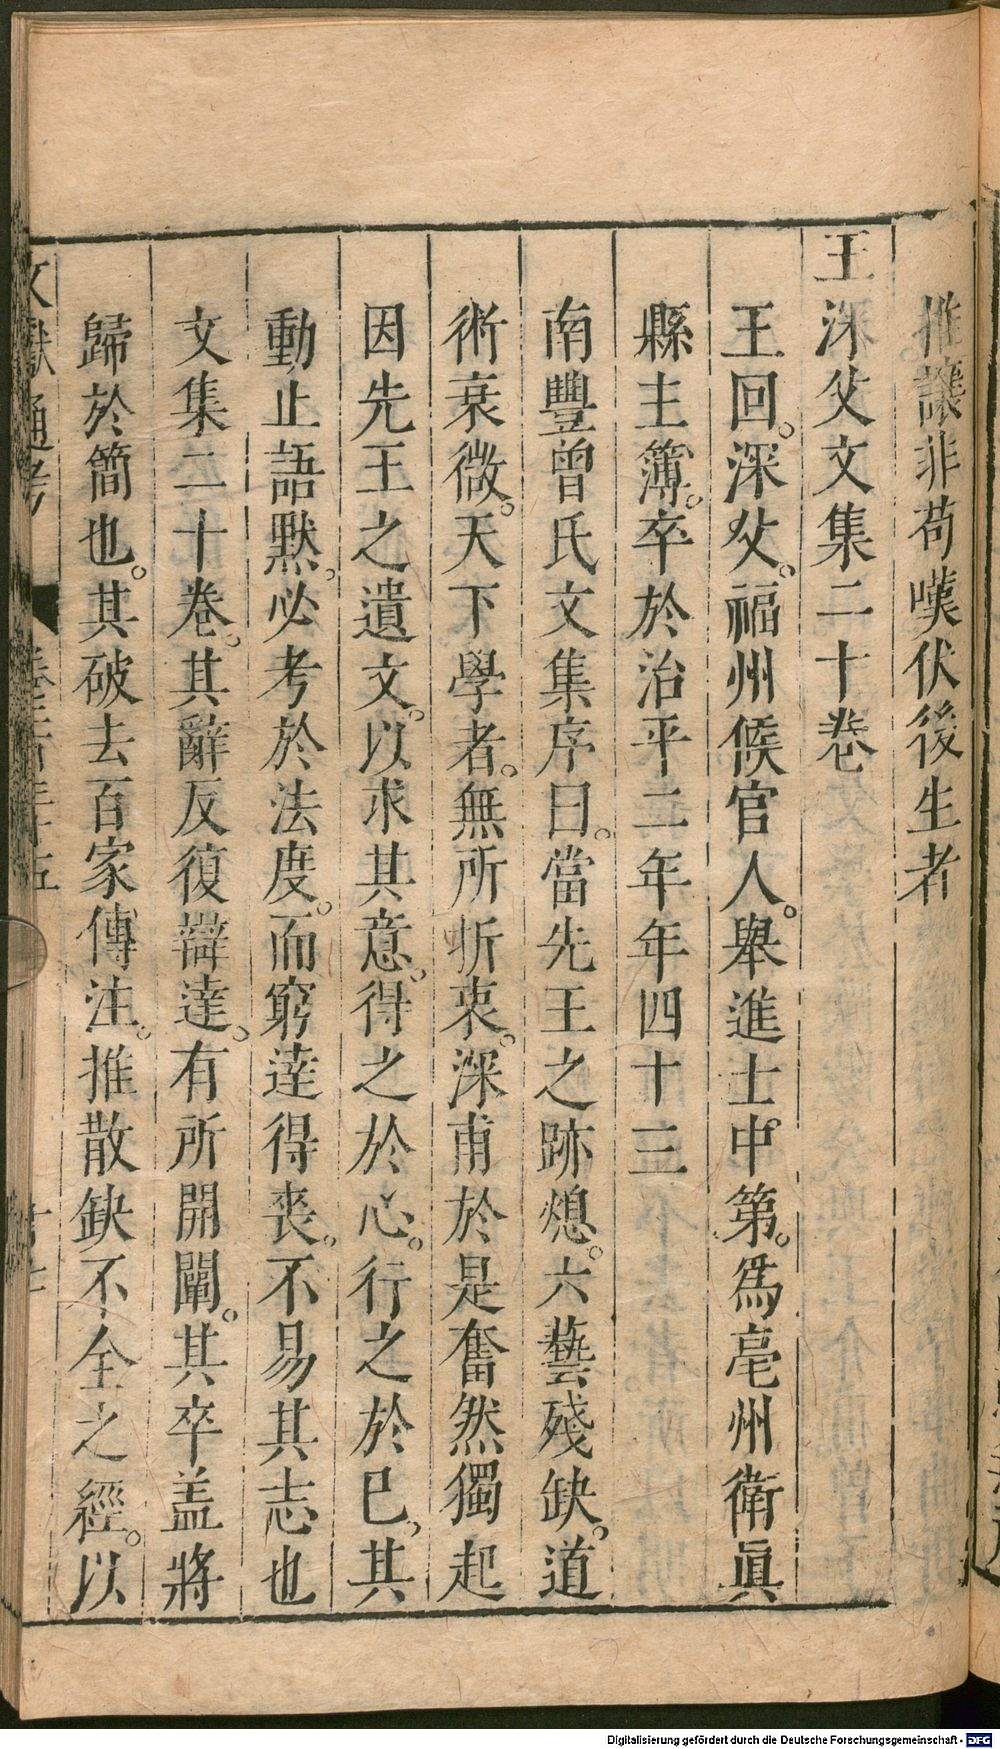 推讓非苟嘆伏後生者
王深父文集二十卷
王回。深父。福州候官人。舉進士中第。爲亳州衛眞
縣主簿。卒於治平二年年四十三
南豐曾氏文集序曰。當先王之跡熄。六藝殘缺。道
術衰微。天下學者。無所折衷。深甫於是奮然獨起
因先王之遺文。以求其意。得之於心。行之於已。其
動止語默。必考於法度。而窮達得喪。不易其志也
文集二十卷。其辭反復辯達。有所開闡。其卒盖將
歸於簡也。其破去百家傳注。推散缺不全之經。以
文獻通考
Digitalisierung gefördert durch die Deutsche Forschungsgemeinschaft - DFG